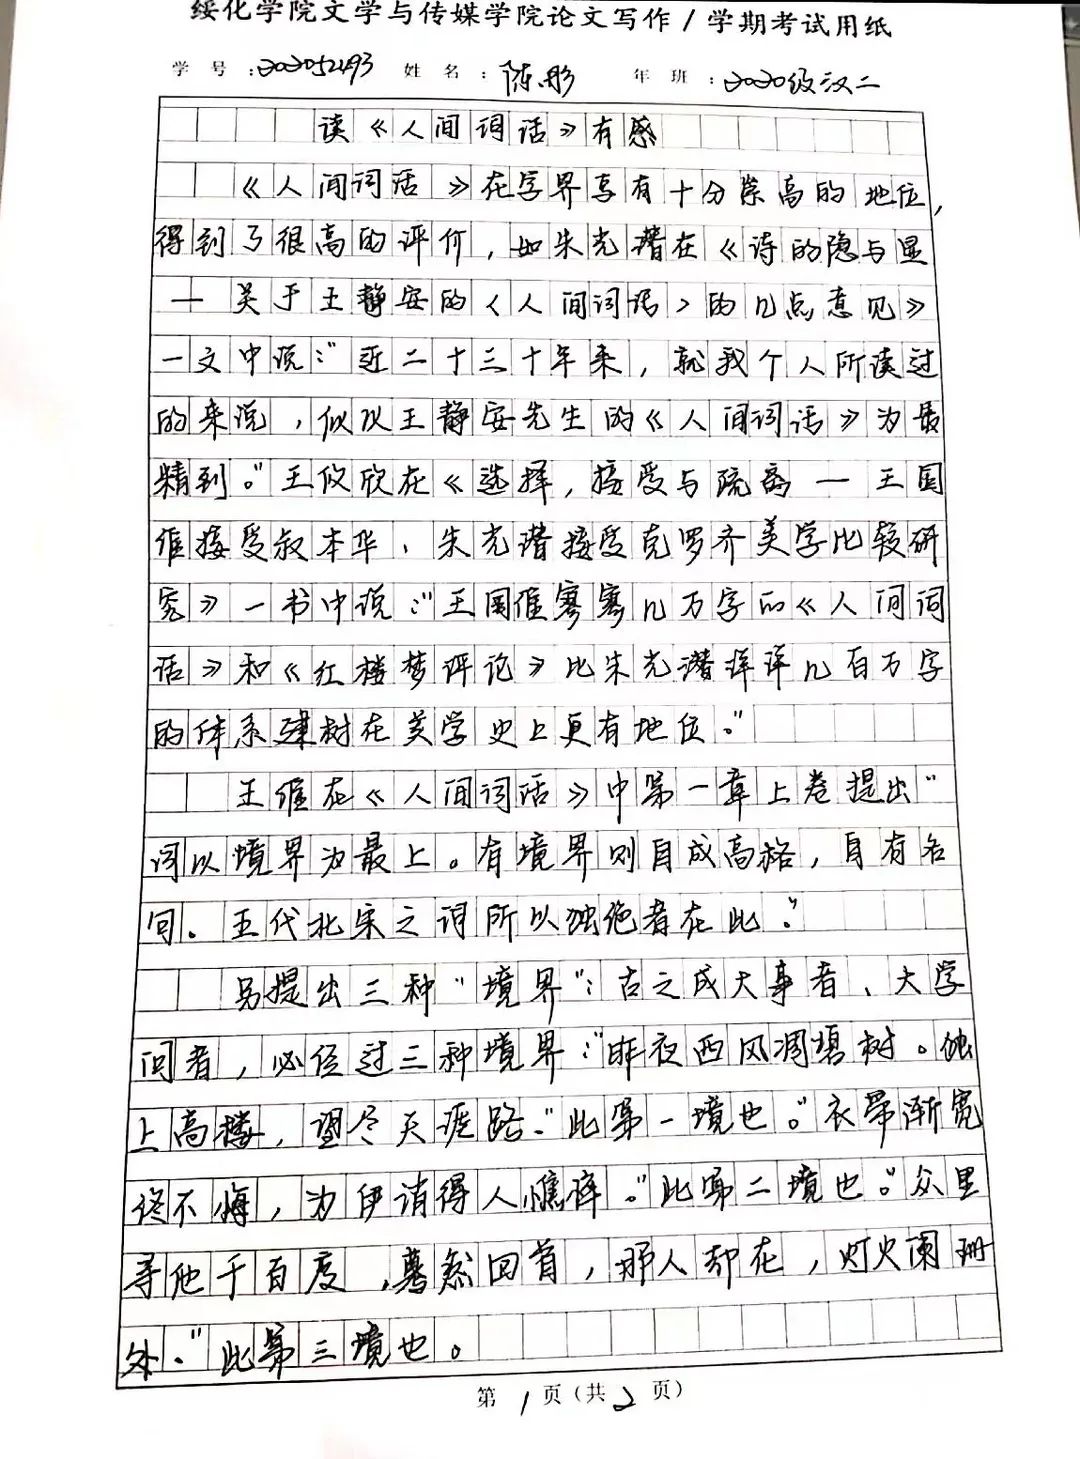 绥化学院文学与传媒学院论文写作/学期考试用纸
学号:202052493 姓名:陈彤 年班:2020级汉二
读《人间词话》有感
《人间词话》在学界享有十分崇高的地位,
得到了很高的评价,如朱光潜在《诗的隐与显
—关于王静安的〈人间词话〉的几点意见》
一文中说:"近二十三十年来,就我个人所读过
的来说,似以王静安先生的《人间词话》为最
精到。"王攸欣在《选择,接受与疏离—王国
维接受叔本华、朱光潜接受克罗齐美学比较研
究》一书中说:"王国维寥寥几万字的《人间词
话》和《红楼梦评论》比朱光潜洋洋几百万字
的体系建树在美学史上更有地位。"
王维在《人间词话》中第一章上卷提出"
词以境界为最上。有境界则自成高格,自有名
句。五代北宋之词所以独绝者在此。"
另提出三种"境界":古之成大事者、大学
问者,必经过三种境界:"昨夜西风凋碧树。独
上高楼,望尽天涯路."此第一境也。"衣带渐宽
终不悔,为伊消得人憔悴。"此第二境也。"众里
寻他千百度,蓦然回首,那人却在,灯火阑珊
处."此第三境也。
第1页(共2页)